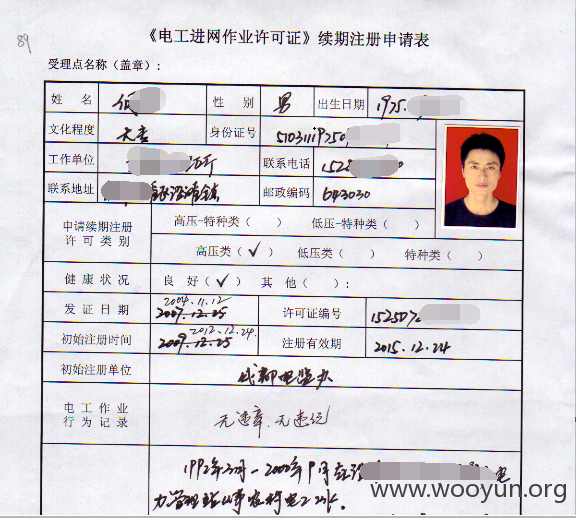 89
《电工进网作业许可证》续期注册申请表
受理点名称（盖章）：
姓 名 性 别 男 出生日期 1975.
文化程度 大专 身份证号 51031119750
工作单位 联系电话 1528 0
联系地址 镇 邮政编码 643030
申请续期注册许可类别 高压-特种类（ ） 低压-特种类（ ）
高压类（✓） 低压类（ ） 特种类（ ）
健康状况 良 好（✓） 其 他（ ）：
发证日期 2009.12.25 2004.11.12 许可证编号 152507
初始注册时间 2009.12.25 2012.12.24 注册有效期 2015.12.24
初始注册单位 成都电监办
电工作业行为记录 无违章、无违纪
1992年 月-2000年9月 电
力管理站
www.wooyun.org